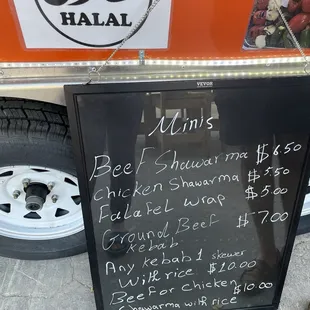 HALAL
VEVOR
Minis
Beef Shawarma $6.50
Chicken Shawarma $5.50
Falafel wrap $5.00
Ground Beef $7.00
Kebab
Any Kebab 1 skewer
With rice $10.00
Beef or Chicken $10.00
Shawarma with rice